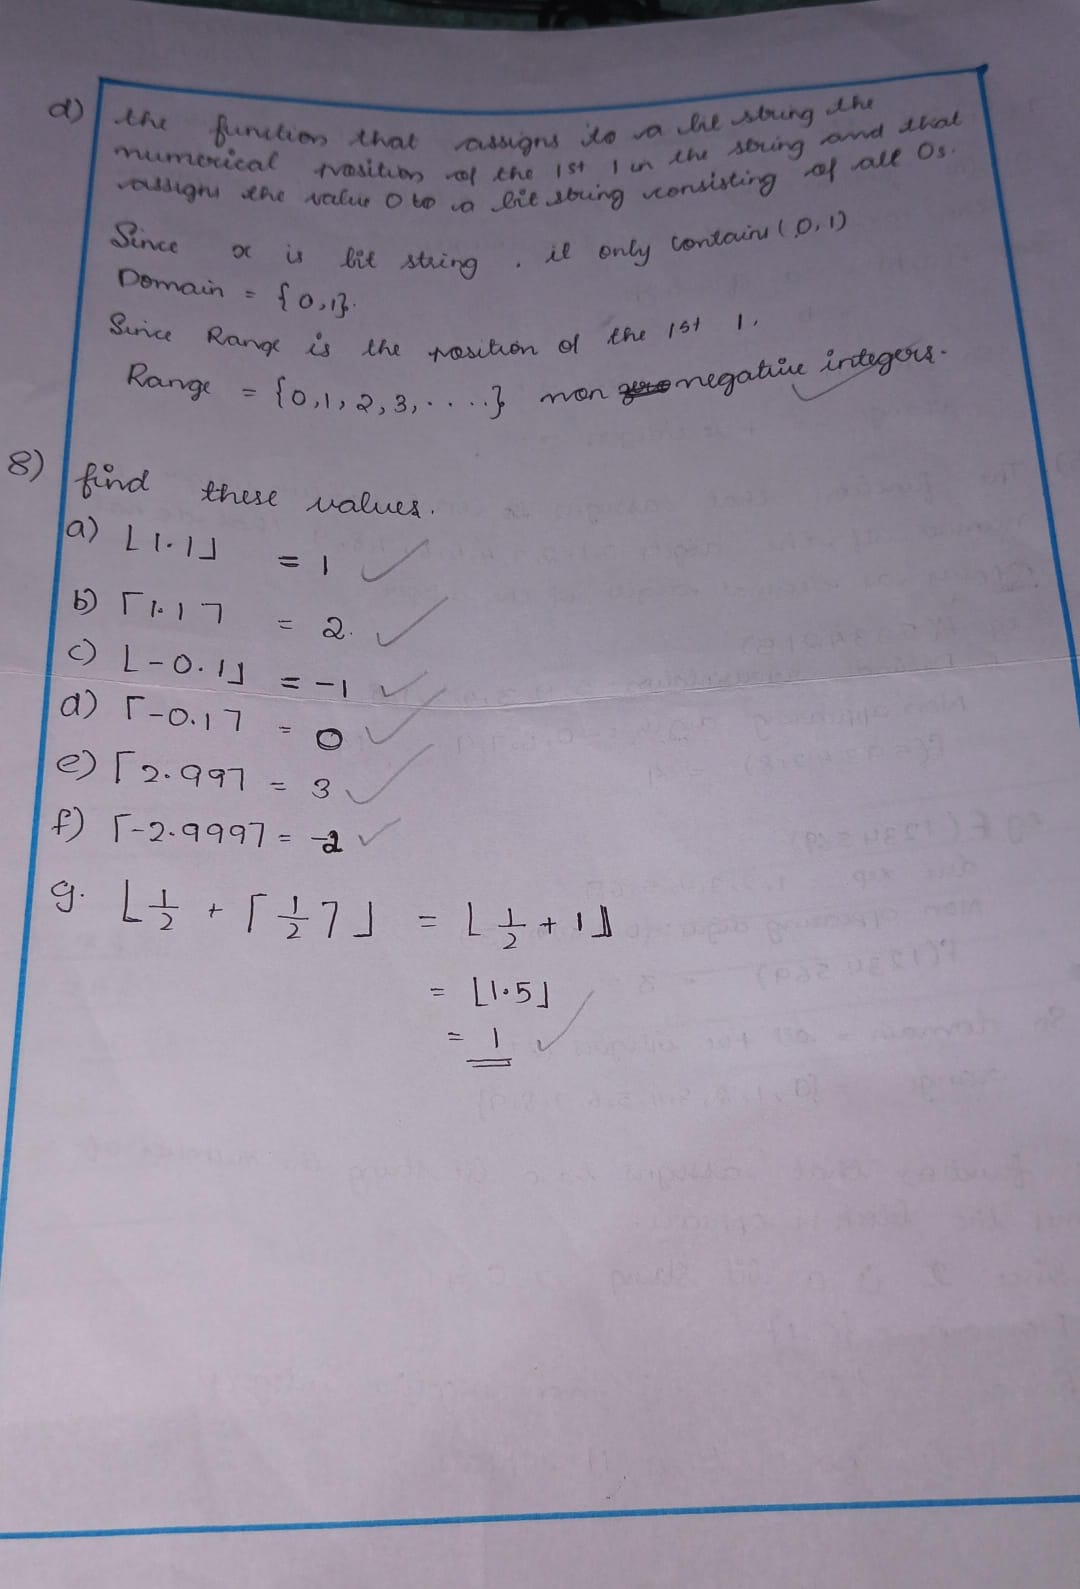 d) the function that assigns to a bit string the
numerical position of the 1st 1 in the string and that
assigns the value 0 to a bit string consisting of all 0s.
Since x is bit string, it only contains (0,1)
Domain = {0,1}.
Since Range is the position of the 1st 1.
Range = {0,1,2,3,....} non negative integers.
8) find these values.
a) ⌊1.1⌋ = 1
b) ⌈1.1⌉ = 2.
c) ⌊-0.1⌋ = -1
d) ⌈-0.1⌉ = 0
e) ⌈2.99⌉ = 3
f) ⌈-2.999⌉ = -2
g. ⌊1/2 + ⌈1/2⌉⌋ = ⌊1/2 + 1⌋
= ⌊1.5⌋
= 1